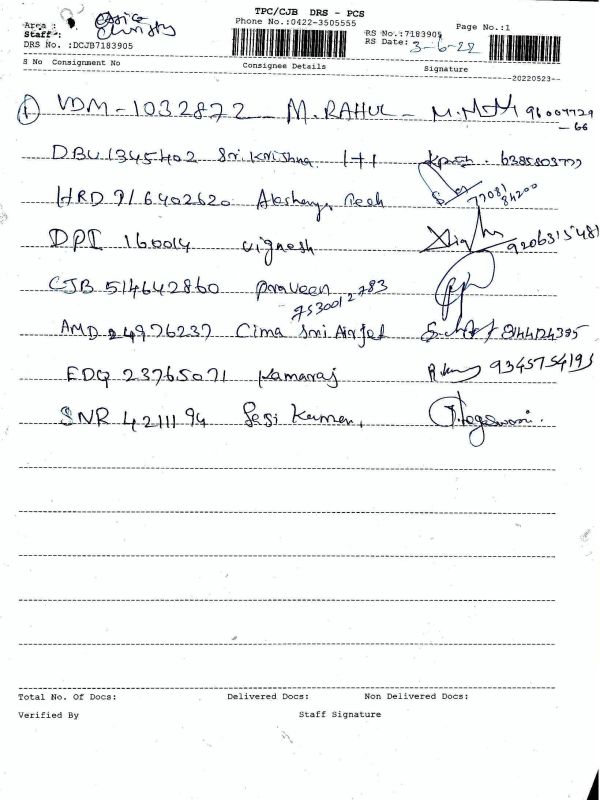 TPC/CJB DRS - PCS
Area : Office
Phone No.:0422-3505555
Page No.:1
Staff : Christy
RS No.:7183905
DRS No. :DCJB7183905
RS Date: 3-6-22
S No Consignment No Consignee Details Signature
20220523--
① VDM - 1032872 - M. RAHUL -
DBU 1345402 Sri Krishna 1+1 6385803777
HRD 916402620
DPI 160014 Vignesh 9206315481
CJB 514642860 Praveen
7530012783
AMD 24976237 Cima Sri Airjet 8144124385
EDQ 23765071 Kamaraj 9345754193
SNR 4211194 Sasi Kumar,
Total No. Of Docs: Delivered Docs: Non Delivered Docs:
Verified By Staff Signature